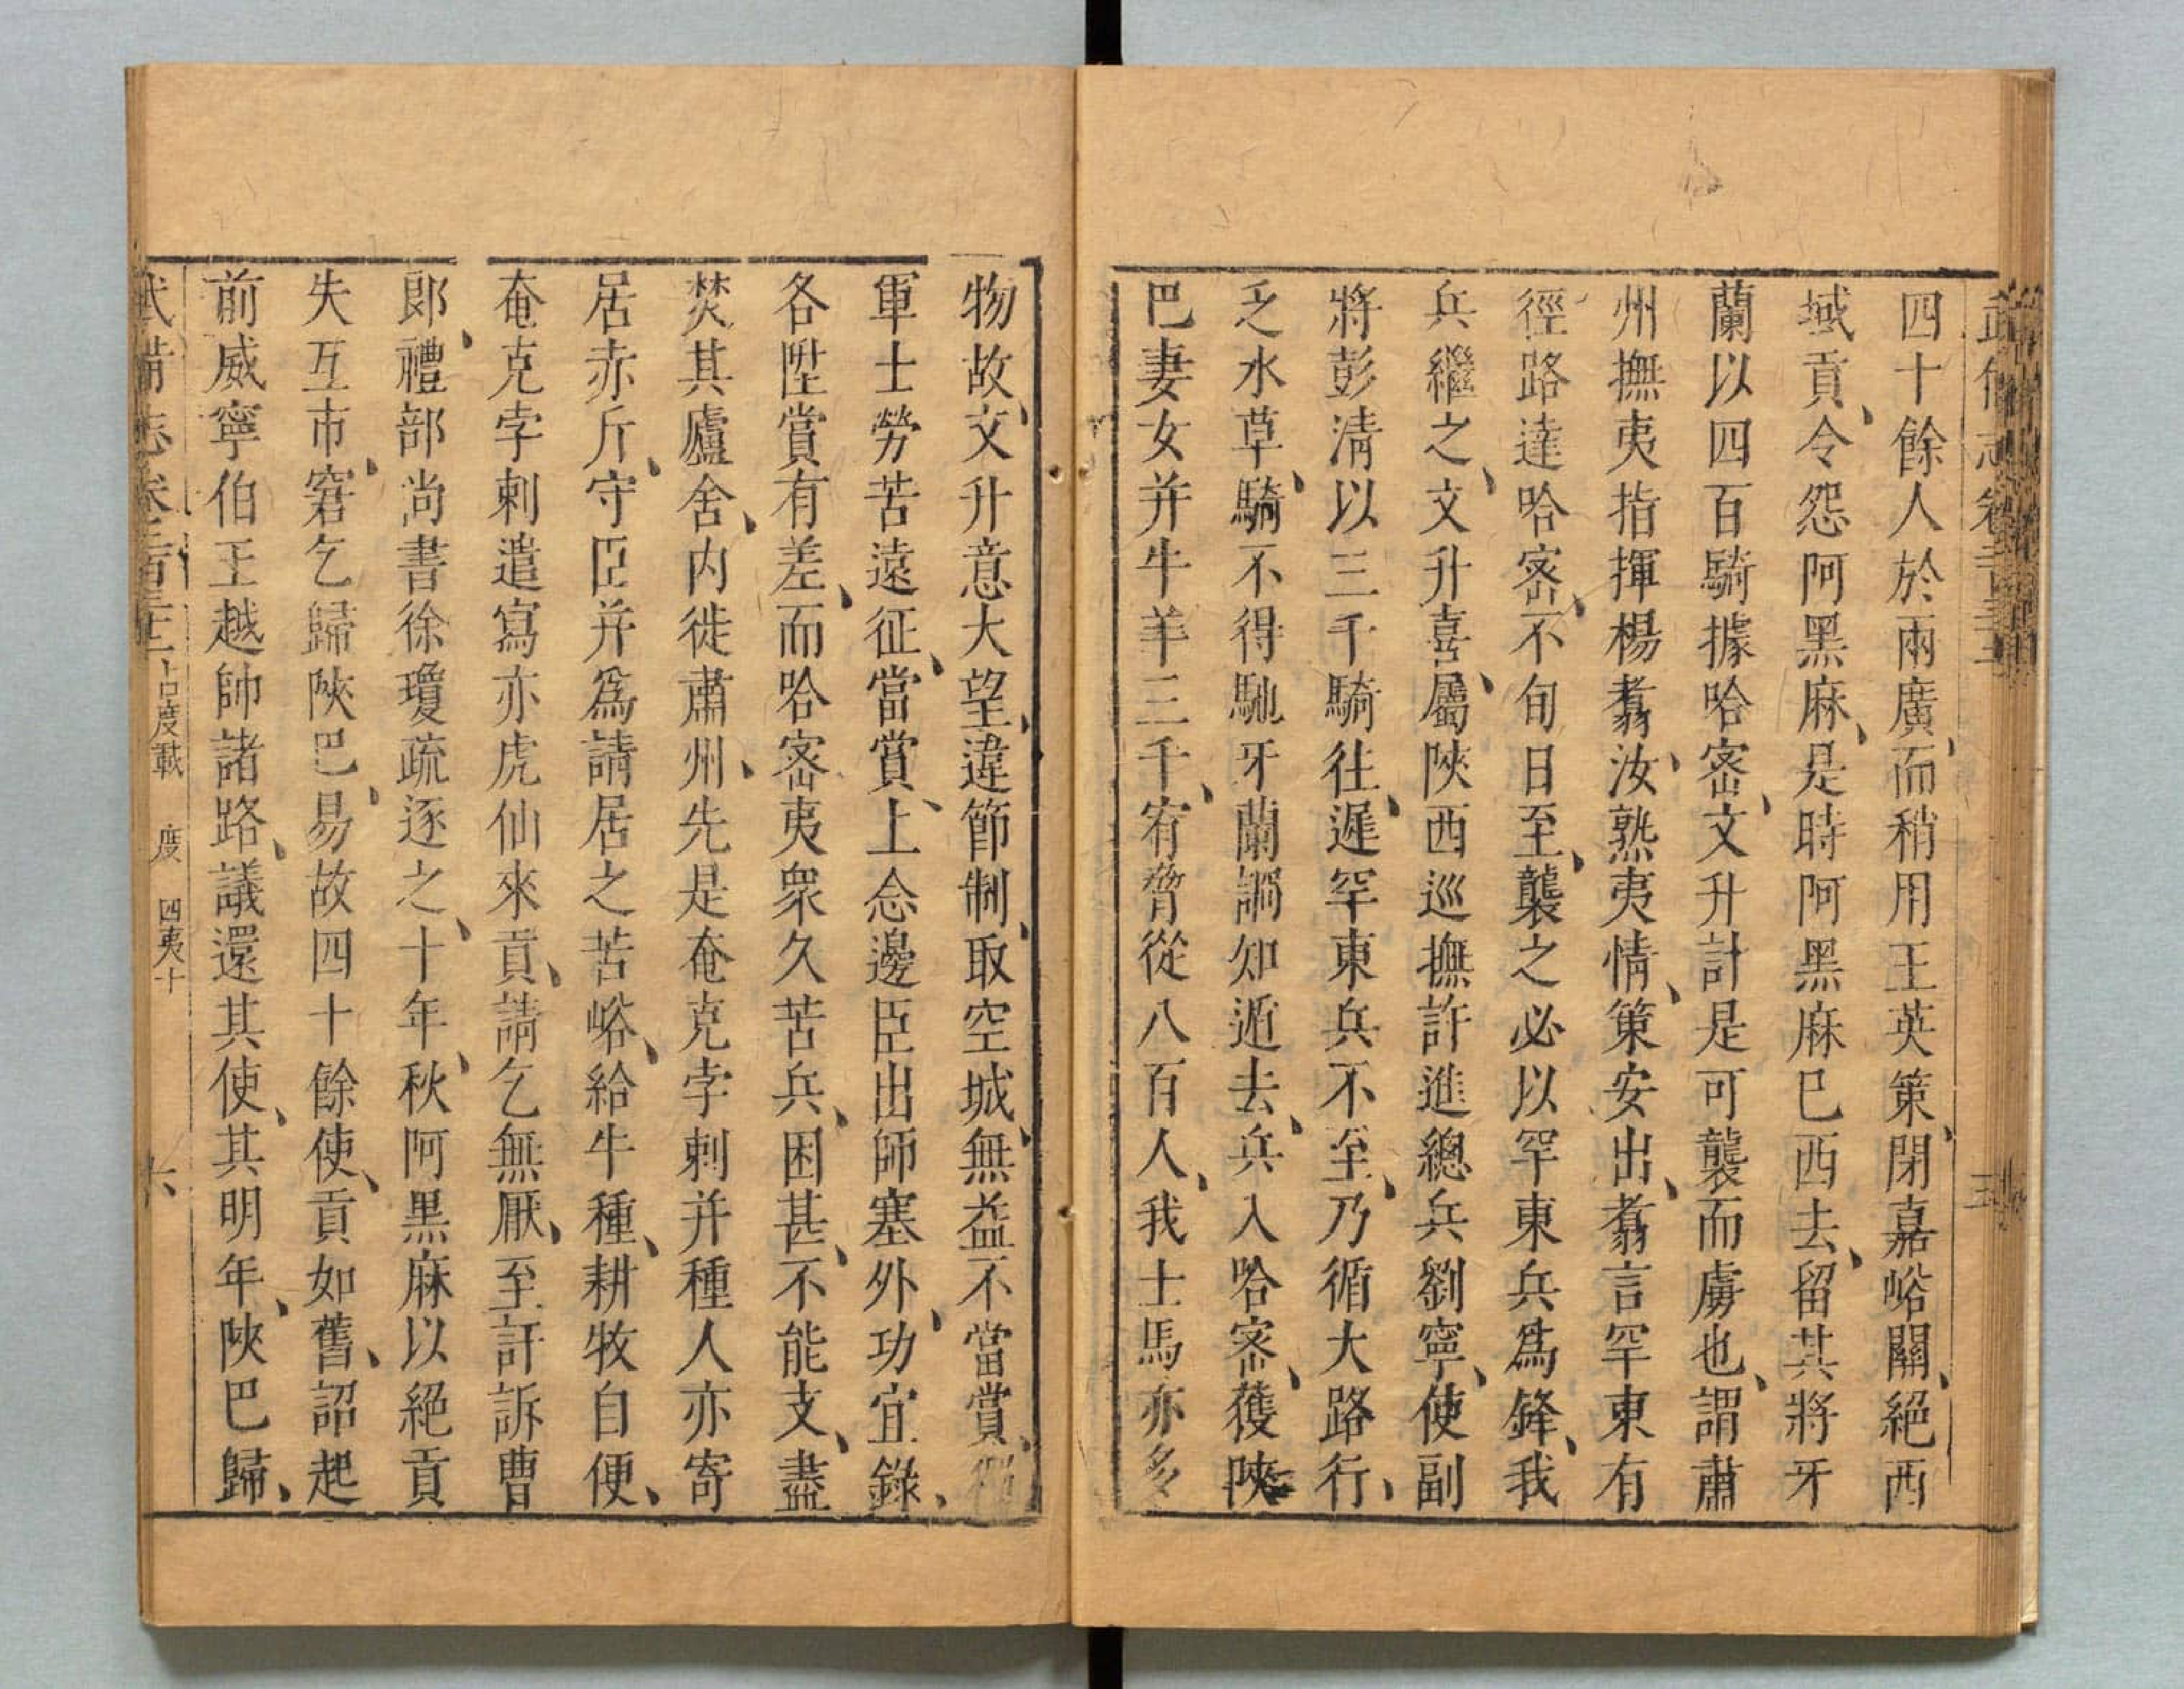 四十餘人於兩廣、而稍用王英策、閉嘉峪關、絕西
域貢、令怨阿黑麻、是時阿黑麻巳西去、留其將牙
蘭以四百騎據哈密、文升計是可襲而虜也、謂肅
州撫夷指揮楊翥、汝熟夷情、策安出、翥言罕東有
徑路達哈密、不旬日至、襲之必以罕東兵爲鋒、我
兵繼之、文升喜、屬陝西巡撫許進總兵劉寧、使副
將彭清以三千騎往、遲罕東兵不至、乃循大路行、
乏水草、騎不得馳牙蘭諝知遁去、兵入哈密、獲陝
巴妻女并牛羊三千、宥脅從八百人、我士馬亦多
物故、文升意大望、違節制、取空城、無益不當賞、
軍士勞苦遠征、當賞、上念邊臣出師塞外、功宜錄、
各陞賞有差、而哈密夷衆久苦兵、困甚、不能支、盡
焚其廬舍、内徙肅州、先是奄克孛剌并種人亦寄
居赤斤、守臣并爲請居之苦峪、給牛種、耕牧自便、
奄克孛剌遣寫亦虎仙來貢、請乞無厭、至訐訴曹
郞、禮部尚書徐瓊疏逐之、十年、秋阿黑麻以絕貢
失互市、窘乞歸陝巴、易故四十餘使、貢如舊、詔起
前威寧伯王越帥諸路、議還其使、其明年、陝巴歸、
武備志卷二百二十二 占度載 度 四夷十 六